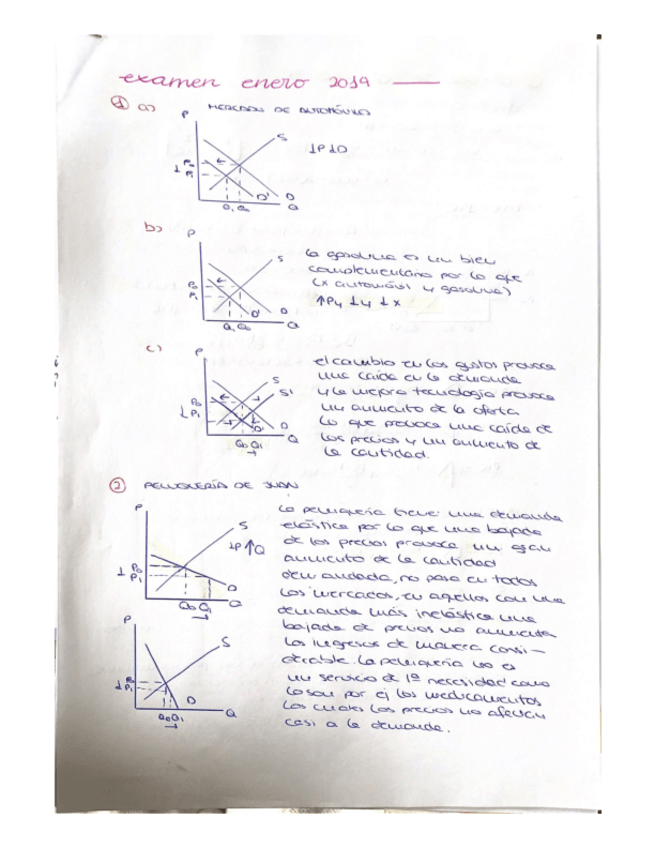 examen enero 2019
1 a) MERCADO DE AUTOMÓVILES
P
S
↓P↓D
↓ P0
P1
D' D
Q1 Q0 Q
b) P
S
la gasolina es un bien
complementario por lo que
(x automóvil y gasolina)
↑Py ↓y ↓x
P0
P1
D' D
Q1 Q0 Q
c) P
S
S'
el cambio en los gustos provoca
una caída en la demanda
y la mejora tecnología provoca
un aumento de la oferta
lo que provoca una caída de
los precios y un aumento de
la cantidad.
↓ P0
P1
D' D
Q0 Q1 Q
2 PELUQUERÍA DE JUAN
P
S
↓P ↑Q
↓ P0
P1
D
Q0 Q1 Q
La peluquería tiene una demanda
elástica por lo que una bajada
de los precios provoca un gran
aumento de la cantidad
demandada, no pasa en todos
los mercados, en aquellos con una
demanda más inelástica una
bajada de precios no aumenta
los ingresos de manera consi-
derable. La peluquería no es
un servicio de 1ª necesidad como
lo son por ej los medicamentos
los cuales los precios no afectan
casi a la demanda.
P
S
↓ P0
P1
D
Q0 Q1 Q